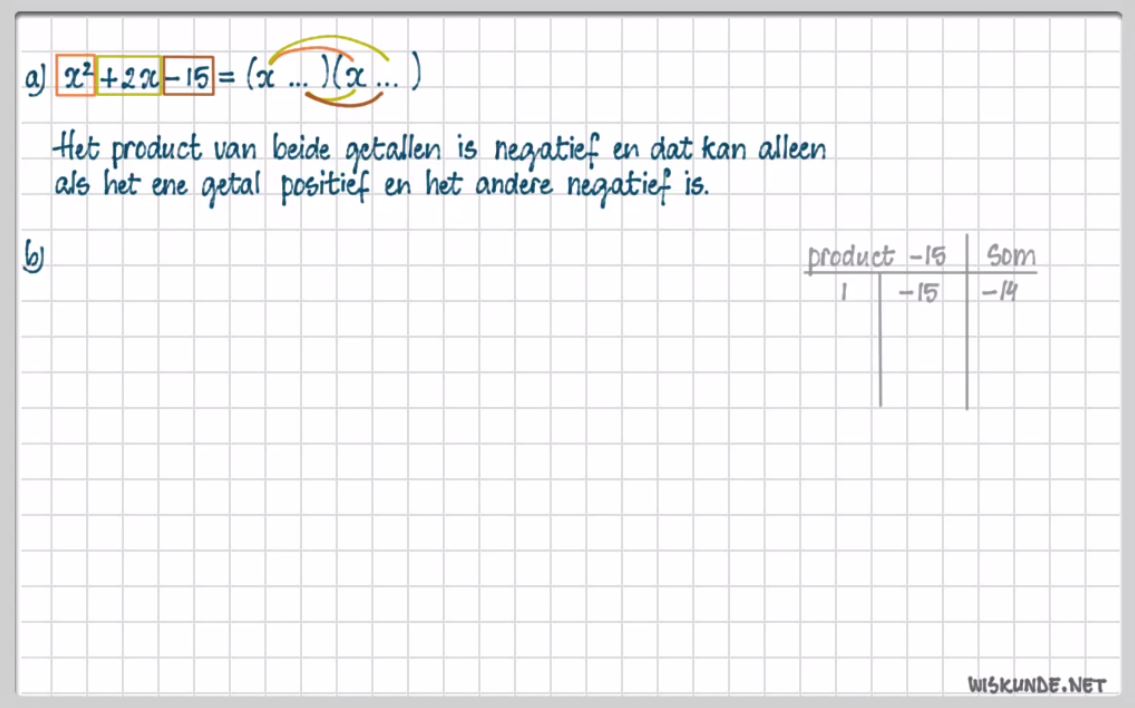 a) x² + 2x - 15 = (x ... )(x ... )
Het product van beide getallen is negatief en dat kan alleen
als het ene getal positief en het andere negatief is.
b)
product -15 | som
1 | -15 | -14
WISKUNDE.NET